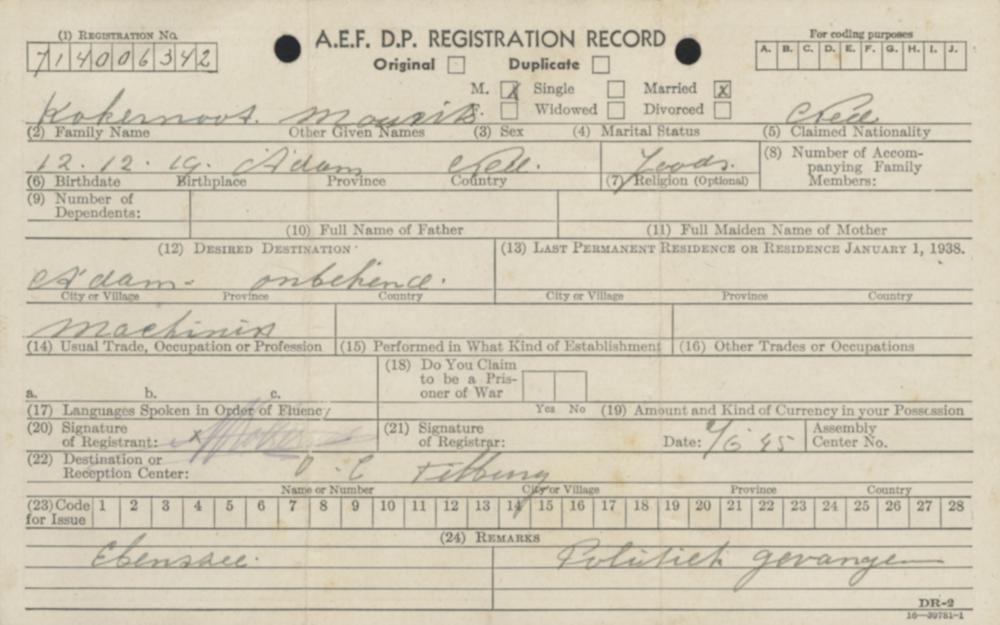 (1) REGISTRATION No.
A.E.F. D.P. REGISTRATION RECORD
For coding purposes
714006342
Original Duplicate
A. B. C. D. E. F. G. H. I. J.
M. X Single Married X
F. Widowed Divorced
Kokernoot. Maurits
(2) Family Name Other Given Names (3) Sex (4) Marital Status (5) Claimed Nationality
12. 12. 19. A'dam Ned. Joods.
(8) Number of Accompanying Family Members:
(6) Birthdate Birthplace Province Country (7) Religion (Optional)
(9) Number of Dependents:
(10) Full Name of Father (11) Full Maiden Name of Mother
(12) DESIRED DESTINATION (13) LAST PERMANENT RESIDENCE OR RESIDENCE JANUARY 1, 1938.
A'dam - onbekend.
City or Village Province Country City or Village Province Country
Machinis
(14) Usual Trade, Occupation or Profession (15) Performed in What Kind of Establishment (16) Other Trades or Occupations
(18) Do You Claim to be a Prisoner of War
a. b. c.
Yes No
(17) Languages Spoken in Order of Fluency (19) Amount and Kind of Currency in your Possession
(20) Signature of Registrant: x (21) Signature of Registrar: Date: /6 45 Assembly Center No.
(22) Destination or Reception Center: Tilburg
Name or Number City or Village Province Country
(23) Code for Issue 1 2 3 4 5 6 7 8 9 10 11 12 13 14 15 16 17 18 19 20 21 22 23 24 25 26 27 28
(24) REMARKS
Ebensee. Politiek gevangen
DR-2
16-39781-1